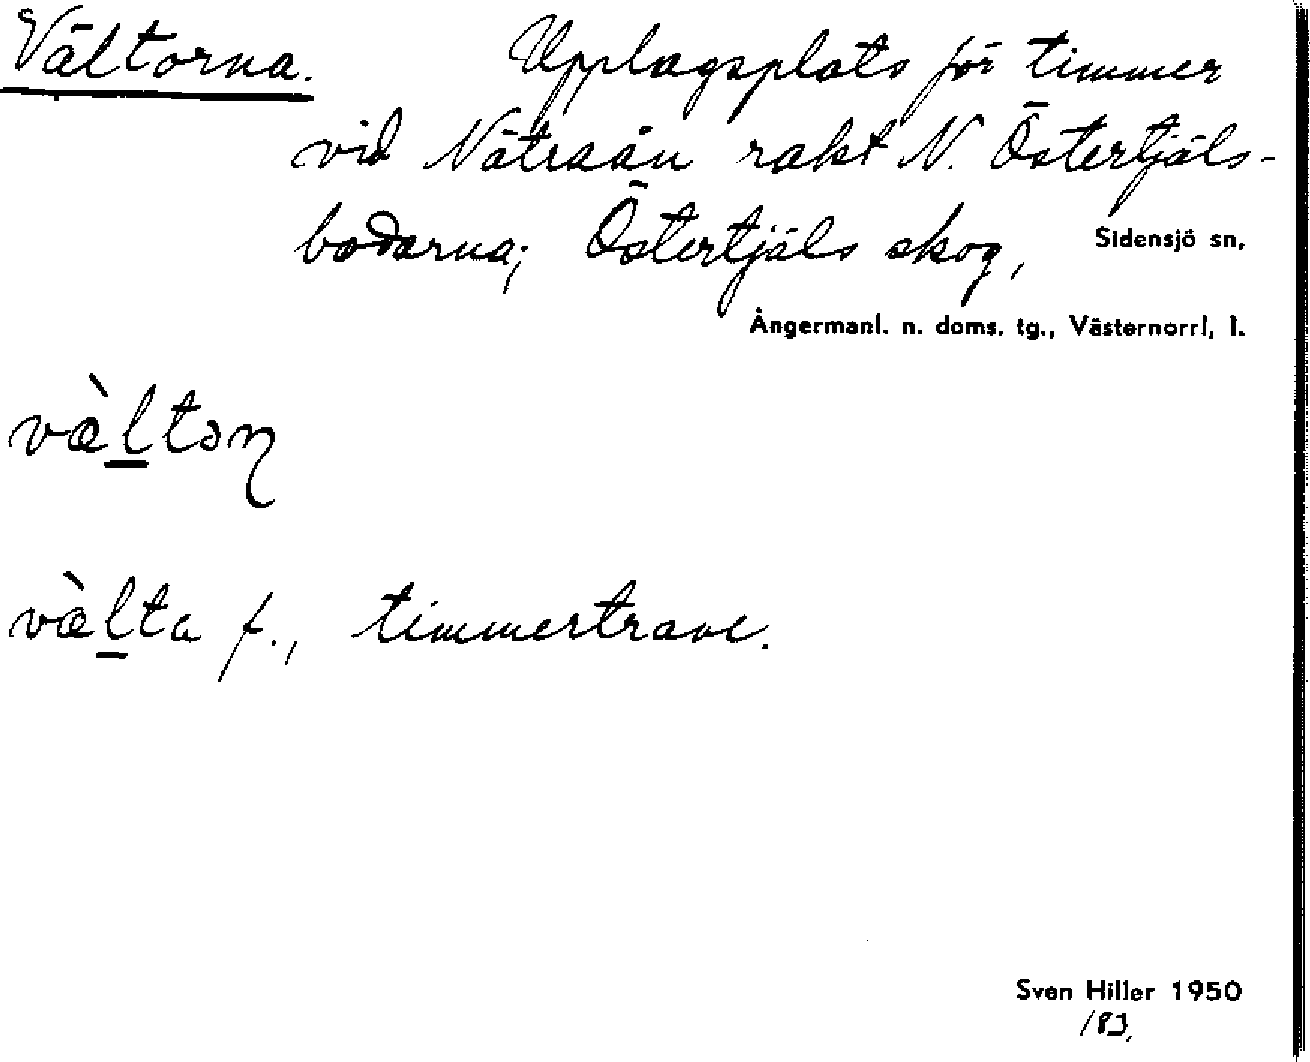 Vältorna. Upplagsplats för timmer
vid Nätraån rakt N. Östertjäls-
bodarna; Östertjäls skog, Sidensjö sn,
Ångermanl. n. doms. tg., Västernorrl, l.
væ̀l̲təɳ
væ̀l̲ta f., timmertrave.
Sven Hiller 1950